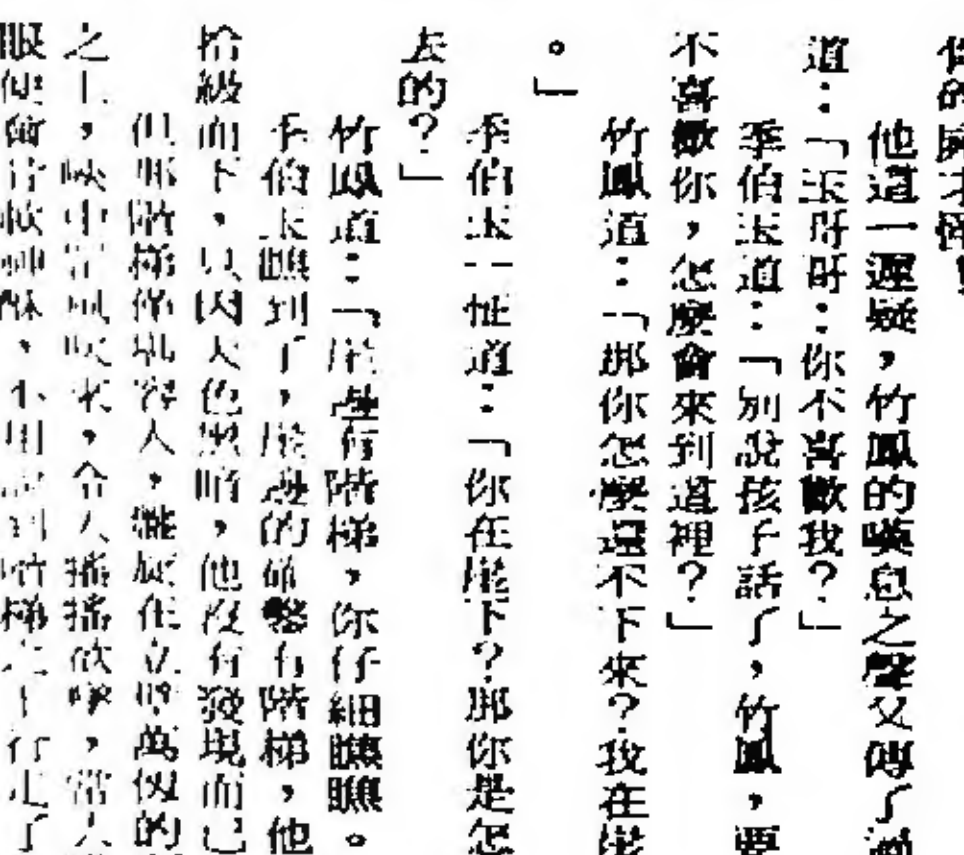 他這一遲疑，竹鳳的嘆息之聲又傳了過
道：「玉哥哥：你不喜歡我？」
季伯玉道：「別說孩子話了，竹鳳，要
不喜歡你，怎麼會來到這裡？」
竹鳳道：「那你怎麼還不下來？我在崖
。」
季伯玉一怔道：「你在崖下？那你是怎
去的？」
竹鳳道：「崖邊有階梯，你仔細瞧瞧。
季伯玉瞧到了，崖邊的確鑿有階梯，他
拾級而下，只因天色黑暗，他沒有發現而已
但那階梯僅堪容人，懸立壁萬仞的
之上，峽中吹來，令人搖搖欲墜，常人
階梯之上行走了